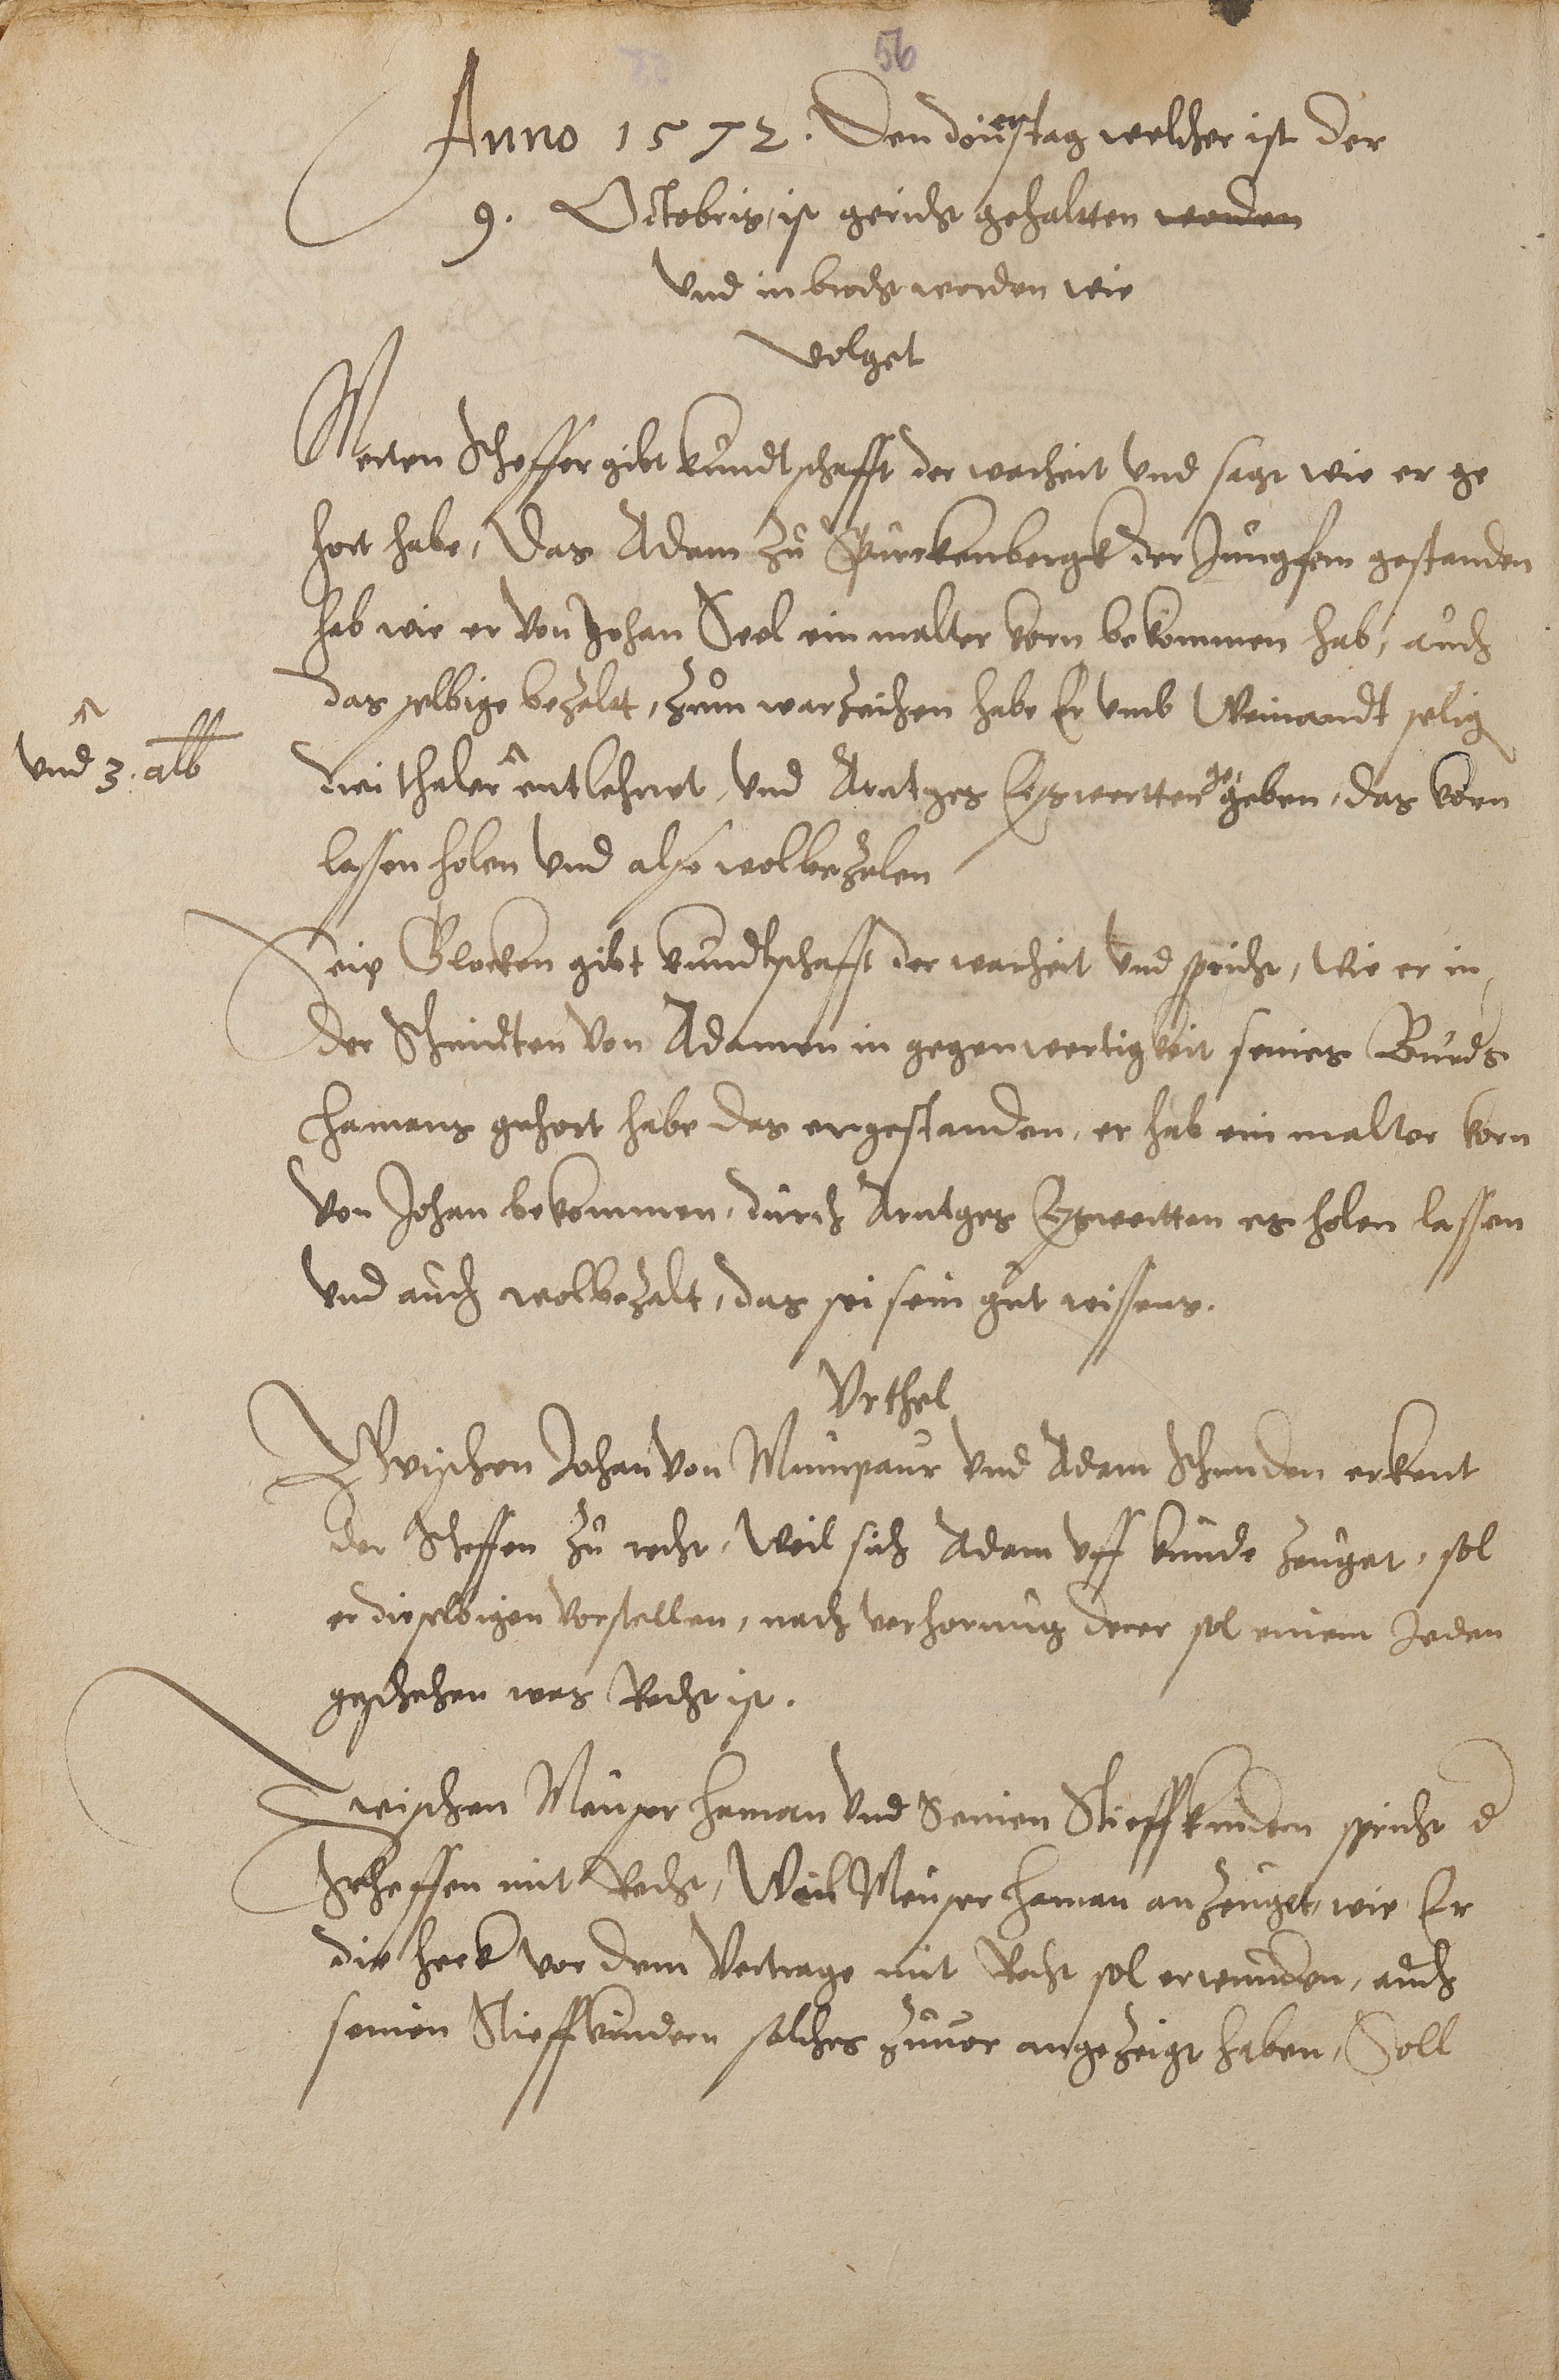 56
Anno 1572. Den donerstag welcher ist der
9. Octobris, ist gericht gehaltten worden
Vnd in bracht worden wie
volget
Merten Scheffer gibt kundtschafft der warheit vnd sagt wie er ge
hort habe, Das Adam zu Spurckenbergk der Jungfern gestanden
hab wie er von Johan Seel ein malter korn bekommen hab, auch
das selbige bezalt, zum warzeichen habe Er vmb Weinandt selig
drei thaler entlehnet, vnd Arntges Gerwertten gegeben, das korn
vnd 3. alb
lassen holen vnd also wolbezalen
Seip Glocken gibt kundtschafft der warheit vnd spricht, wie er in
der Schmidten von Adamen in gegenwertigkeit seines Bruders
Hamans gehort habe das er gestanden, er hab ein malter korn
von Johan bekommen, durch Arntges Gerwertten es holen lassen
vnd auch wolbezalt, das sei sein gut wissens.
Vrthel
Zwischen Johan von Muntpaur vnd Adam Schmiden erkent
der Scheffen zu recht, Weil sich Adam vff kunde zeuget, sol
er dieselbigen vorstellen, nach verhorung derer sol einem Jeden
geschehen was Recht ist.
Zwischen Meuser Haman vnd Seinen Stieffkindern spricht d
Scheffen mit Recht, Weil Meuser Haman anzeuget, wie Er
die heck vor dem Vertrage mit Recht sol erwunden, auch
seinen Stieffkindern solches zuuor angezeigt haben, Soll